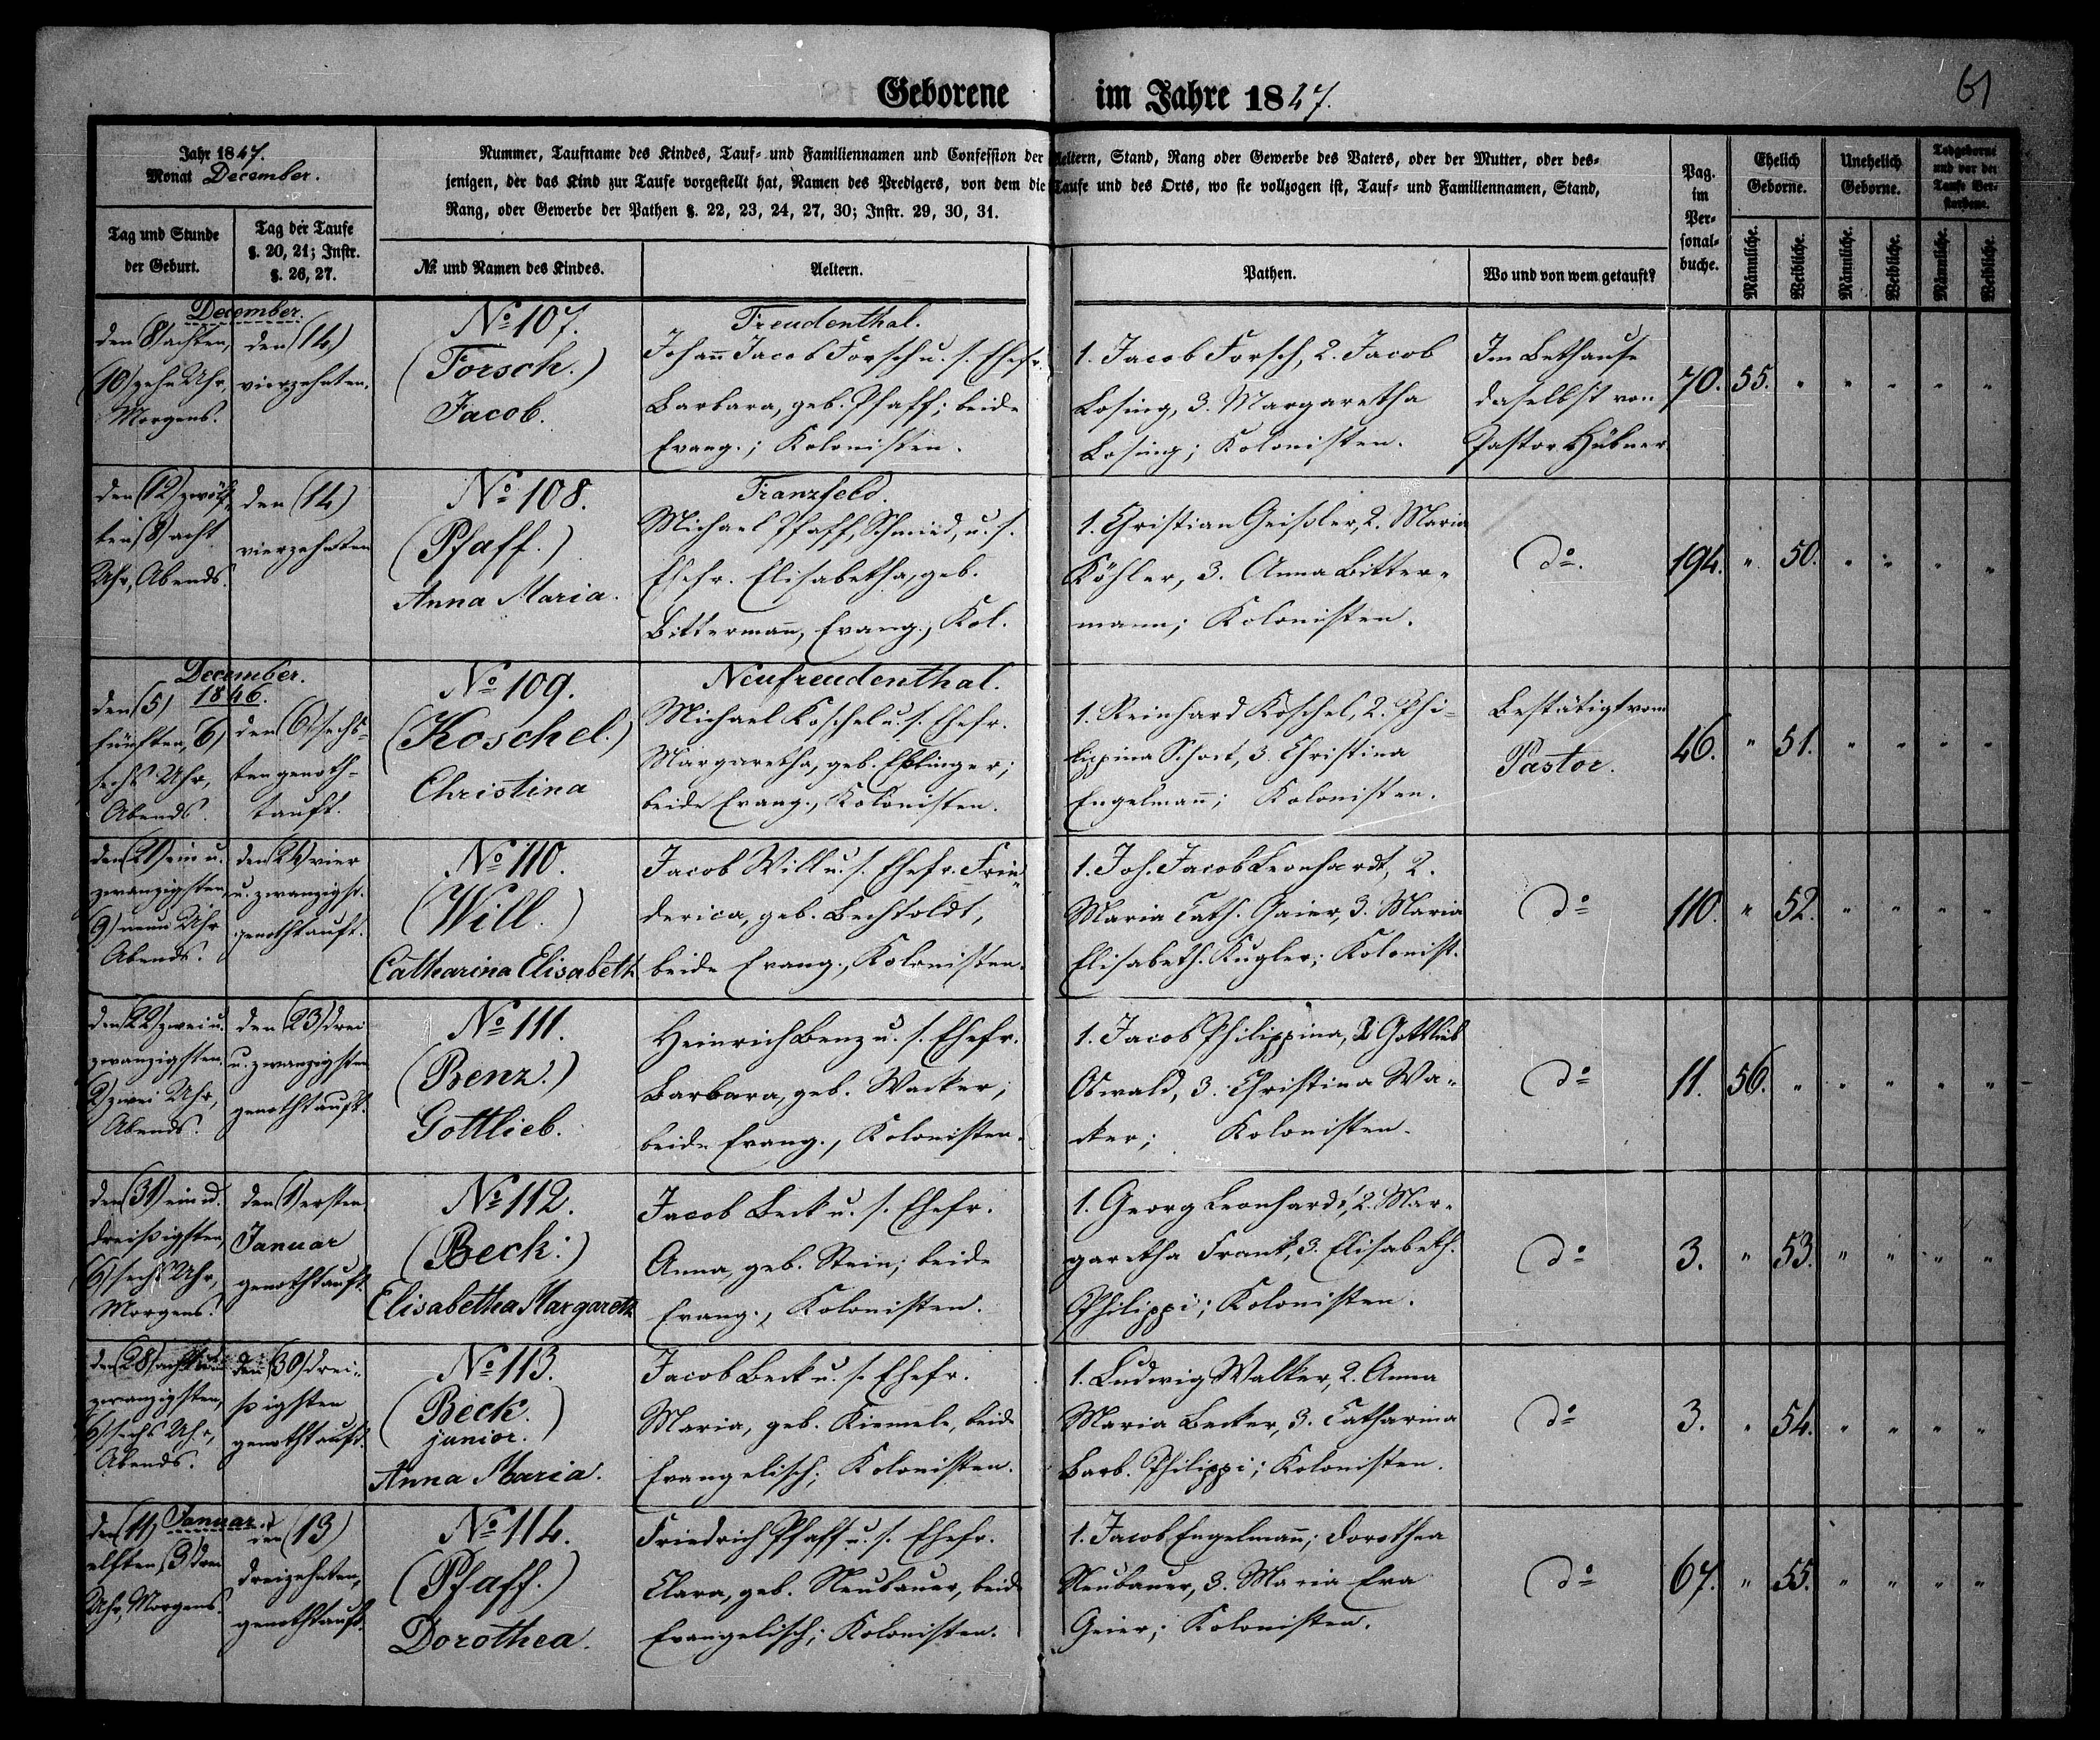 Geborene im Jahre 1847.
61
Jahr 1847.
Monat December.
Nummer, Taufname des Kindes, Tauf- und Familiennamen und Confession der Aeltern, Stand, Rang oder Gewerbe des Vaters, oder der Mutter, oder des-
jenigen, der das Kind zur Taufe vorgestellt hat, Namen des Predigers, von dem die Taufe und des Orts, wo sie vollzogen ist, Tauf- und Familiennamen, Stand,
Rang, oder Gewerbe der Pathen §. 22, 23, 24, 27, 30; Instr. 29, 30, 31.
Pag.
im
Per-
sonal-
buche.
Ehelich
Geborne.
Unehelich
Geborne.
Todgeborne
und vor der
Taufe Ver-
storbene.
Tag und Stunde
der Geburt.
Tag der Taufe
§. 20, 21; Instr.
§. 26, 27.
№ und Namen des Kindes.
Aeltern.
Pathen.
Wo und von wem getauft?
Männliche.
Weibliche.
Männliche.
Weibliche.
Männliche.
Weibliche.
December.
den (8) achten,
(10) zehn Uhr,
Morgens.
den (14)
vierzehnten.
№ 107.
(Forsch.)
Jacob.
Freudenthal.
Johan̄ Jacob Forsch u. s. Ehefr.
Barbara, geb. Pfaff; beide
Evang.; Kolonisten.
1. Jacob Forsch, 2. Jacob
Losing, 3. Margaretha
Losing; Kolonisten.
Im Bethause
daselbst von
Pastor Hübner
70. 55. " " " " "
den (12) zwölf-
ten (8) acht
Uhr, Abends.
den (14)
vierzehnten
№ 108.
(Pfaff.)
Anna Maria.
Franzfeld.
Michael Pfaff, Schmied, u. s.
Ehefr. Elisabetha, geb.
Bitterman̄, Evang., Kol.
1. Christian Geißler, 2. Maria
Köhler, 3. Anna Bitter-
mann; Kolonisten.
do.
194. " 50. " " " "
December.
1846.
den (5)
fünften, 6)
sechs Uhr,
Abends.
den (6) sechs-
ten genoth-
tauft.
№ 109.
(Koschel.)
Christina
Neufreudenthal.
Michael Koschel u. s. Ehefr.
Margaretha, geb. Eßlinger;
beide Evang., Kolonisten.
1. Reinhard Koschel, 2. Phi-
lippina Schort, 3. Christina
Engelman̄; Kolonisten.
Bestätigt vom
Pastor.
46. " 51. " " " "
den (21) ein u.
zwanzigsten,
(9) neun Uhr
Abends.
den (24) vier
u. zwanzigst.
genothtauft.
№ 110.
(Will.)
Catharina Elisabeth
Jacob Will u. s. Ehefr. Frie-
derica, geb. Bechtoldt,
beide Evang., Kolonisten.
1. Joh. Jacob Leonhardt, 2.
Maria Cath. Gaier, 3. Maria
Elisabeth. Kugler; Kolonist.
do
110. " 52. " " " "
den (22) zwei u.
zwanzigsten.
2) zwei Uhr,
Abends.
den (23) drei
u. zwanzigsten
genothtauft.
№ 111.
(Benz.)
Gottlieb.
Heinrich Benz u. s. Ehefr.
Barbara, geb. Wacker;
beide Evang., Kolonisten.
1. Jacob Philippina, 2 Gottlieb
Oswald, 3. Christina Wa-
cker; Kolonisten.
do
11. 56. " " " " "
den (31) ein u.
dreißigsten,
(6) sechs Uhr,
Morgens.
den (1) ersten
Januar
genothtauft.
№ 112.
(Beck.)
Elisabetha Margareth
Jacob Beck u. s. Ehefr.
Anna, geb. Stein; beide
Evang., Kolonisten.
1. Georg Leonhardt, 2. Mar-
garetha Frank, 3. Elisabeth.
Philippi; Kolonisten.
do
3. " 53. " " " "
den (28) acht und
zwanzigsten,
6) sechs Uhr,
Abends.
den (30) drei-
ßigsten
genothtauft.
№ 113.
(Beck.
junior.)
Anna Maria.
Jacob Beck u. s. Ehefr.
Maria, geb. Kiemele, beide
Evangelisch; Kolonisten.
1. Ludwig Walker, 2. Anna
Maria Becker, 3. Catharina
Barb. Philippi; Kolonisten.
do
3. " 54. " " " "
Januar.
den (11)
elften, (3) drei
Uhr, Morgens.
den (13)
dreizehnten,
genothtauft.
№ 114.
(Pfaff.)
Dorothea.
Friedrich Pfaff u. s. Ehefr.
Clara, geb. Neubauer, beide
Evangelisch; Kolonisten.
1. Jacob Engelman̄; Dorothea
Neubauer, 3. Maria Eva
Geier; Kolonisten.
do
67. " 55. " " " "